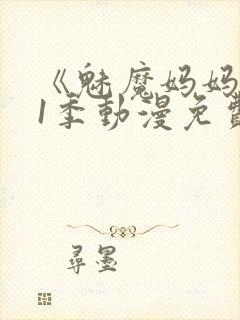 《魅魔妈妈
1季動漫免費
尋墨